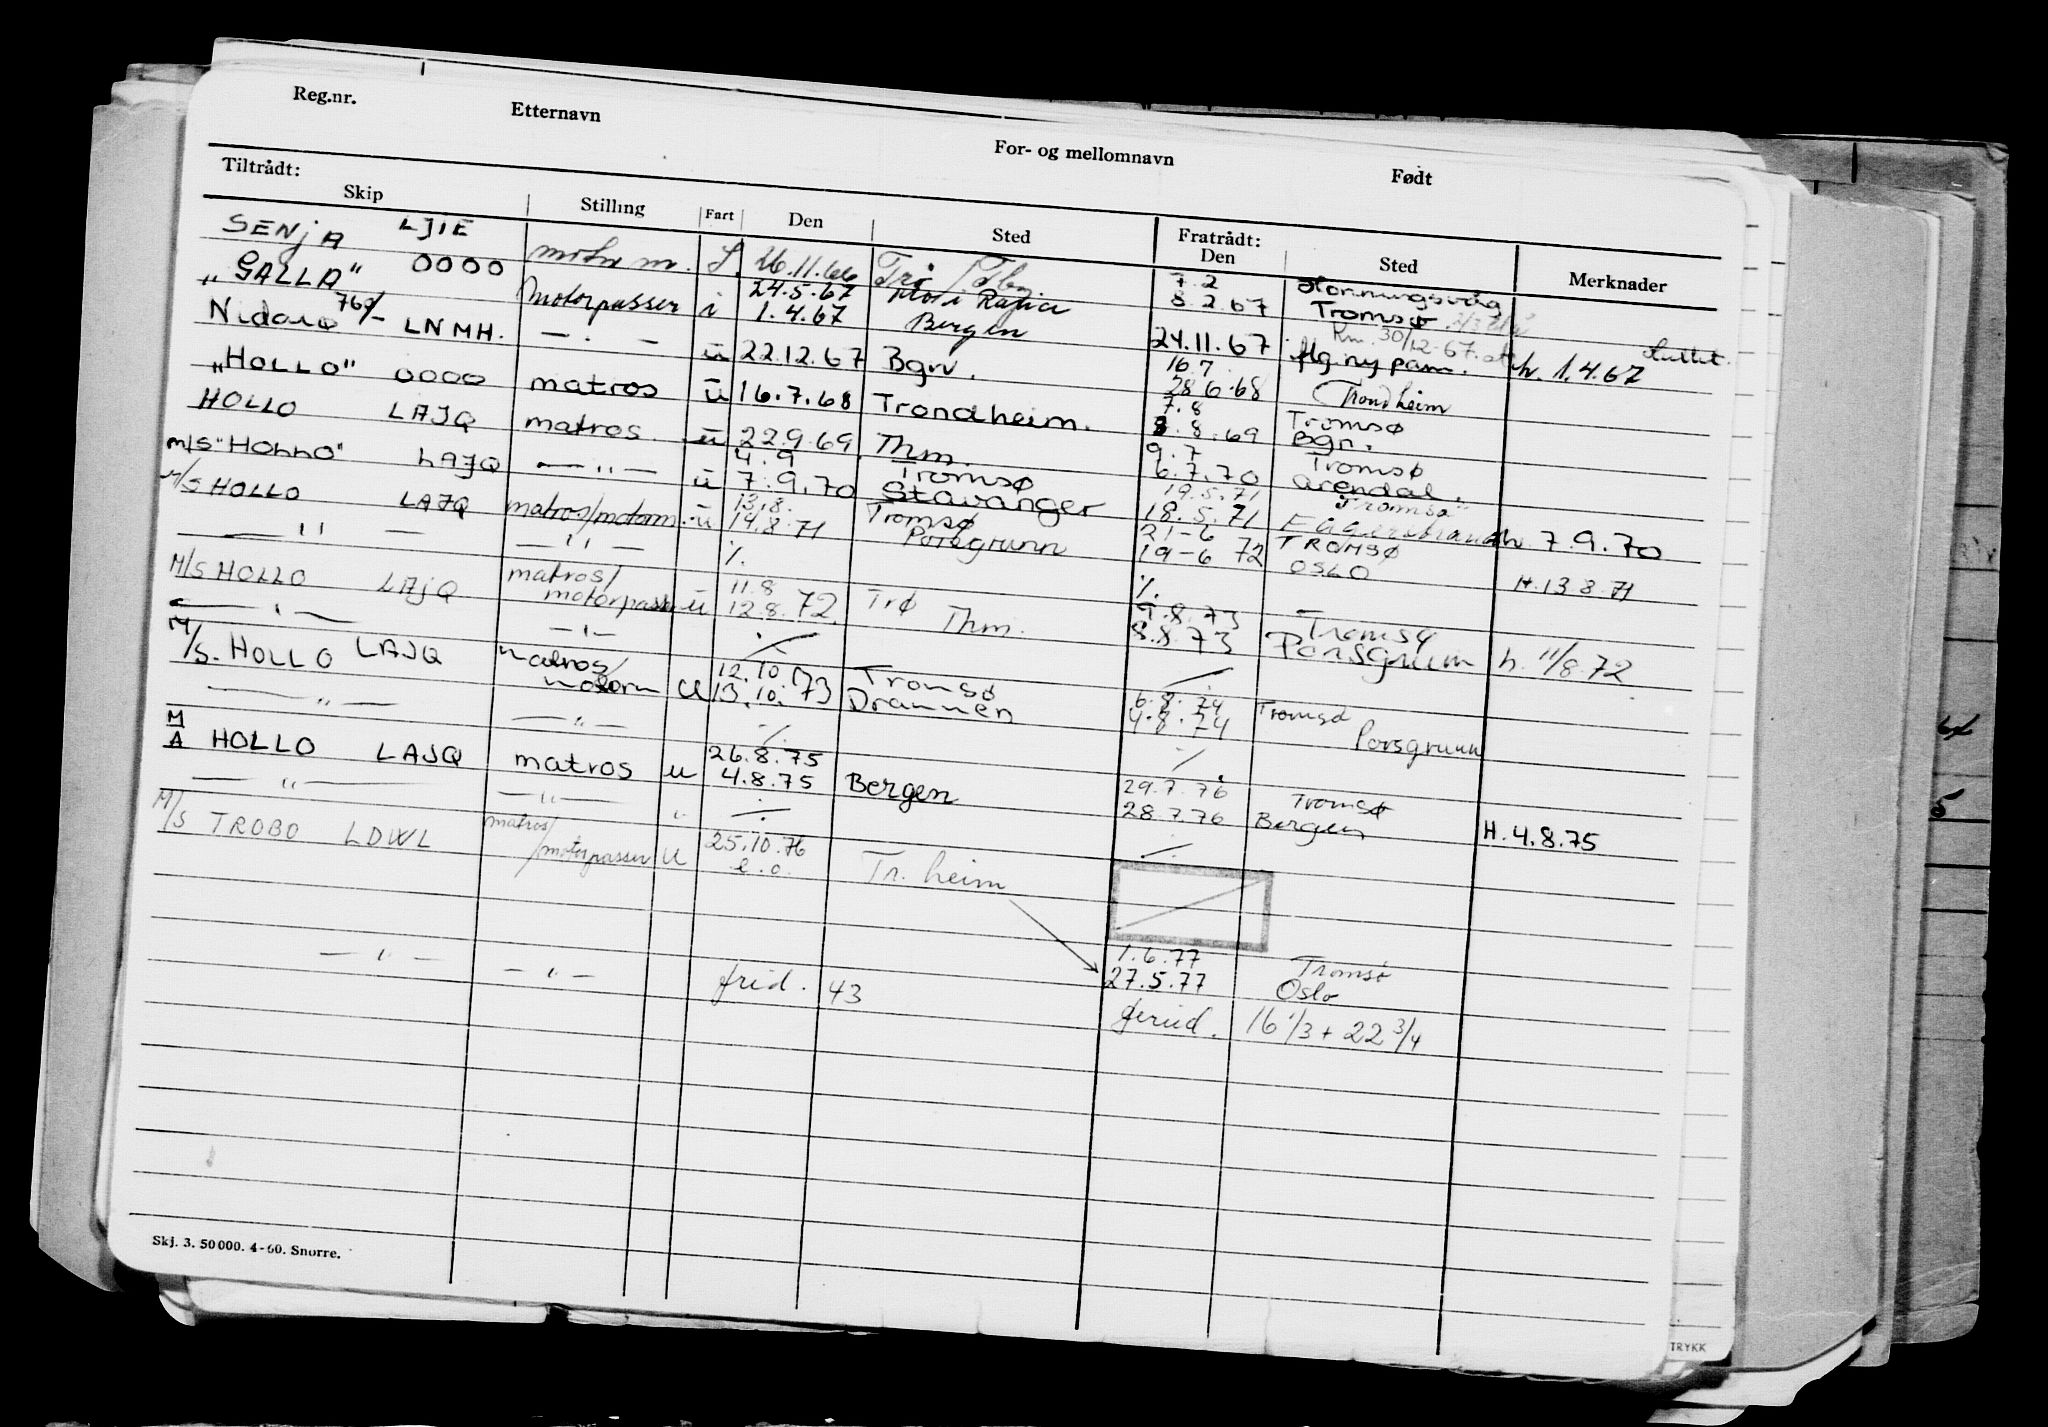 Reg.nr. Etternavn For- og mellomnavn Født
Tiltrådt: Fratrådt:
Skip Stilling Fart Den Sted Den Sted Merknader
SENJA LJIE 26.11.66 7.2 Honningsvåg
8.2.67 Tromsø
"GALLA" OOOO Motorpasser i 24.5.67
Nidarø 762/- LNMH. — " — 1.4.67 Bergen 24.11.67 flg. ny pam. h. 1.4.67 Slettet.
30/12-67
"HOLLO" OOOO matros ū 22.12.67 Bgn. 16.7
28.6.68 Trondheim
HOLLO LAJQ matros ū 16.7.68 Trondheim. 7.8 Tromsø
8.8.69 Bgn.
M/S "HOLLO" LAJQ — " — ū 22.9.69 Thm. 9.7 Tromsø
6.7.70 Arendal.
M/S HOLLO LAJQ matros/motorm. ū 4.9 Tromsø 19.5.71 Tromsø
7.9.70 Stavanger 18.5.71 h. 7.9.70
— " — — " — ū 13.8. Tromsø 21-6 TROMSØ
14.8.71 Porsgrunn 19-6 72 OSLO H. 13.8.71
M/S HOLLO LAJQ matros/ ./. ./.
motorpasser ū 11.8 Trø 9.8.73 Tromsø
12.8.72 Thm. 8.8.73 Porsgrunn h. 11/8.72
— " — — " — ./. ./.
M/S. HOLLO LAJQ Matros/ 12.10.73 Tromsø 6.8.74 Tromsø
motorm U 13.10.73 Drammen 4.8.74 Porsgrunn
— " — — " — ./. ./.
M/A HOLLO LAJQ matros u 26.8.75 29.7.76 Tromsø
4.8.75 Bergen 28.7.76 Bergen H. 4.8.75
— " — — " — " ./. ./.
M/S TROBO LDWL matros/ 25.10.76
/motorpasser U e.o. Tr.heim
1.6.77 Tromsø
— " — — " — 27.5.77 Oslo
frid. 43 feriid. 16 1/3 + 22 3/4
Skj. 3. 50000. 4-60. Snorre.
TRYKK